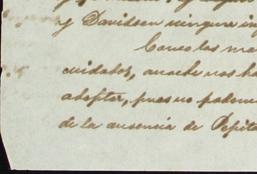 y Davidson ningune in
Como las ma
cuidados, anoche nos ha
adoptar, pues no podemo
de la ausencia de Pepita